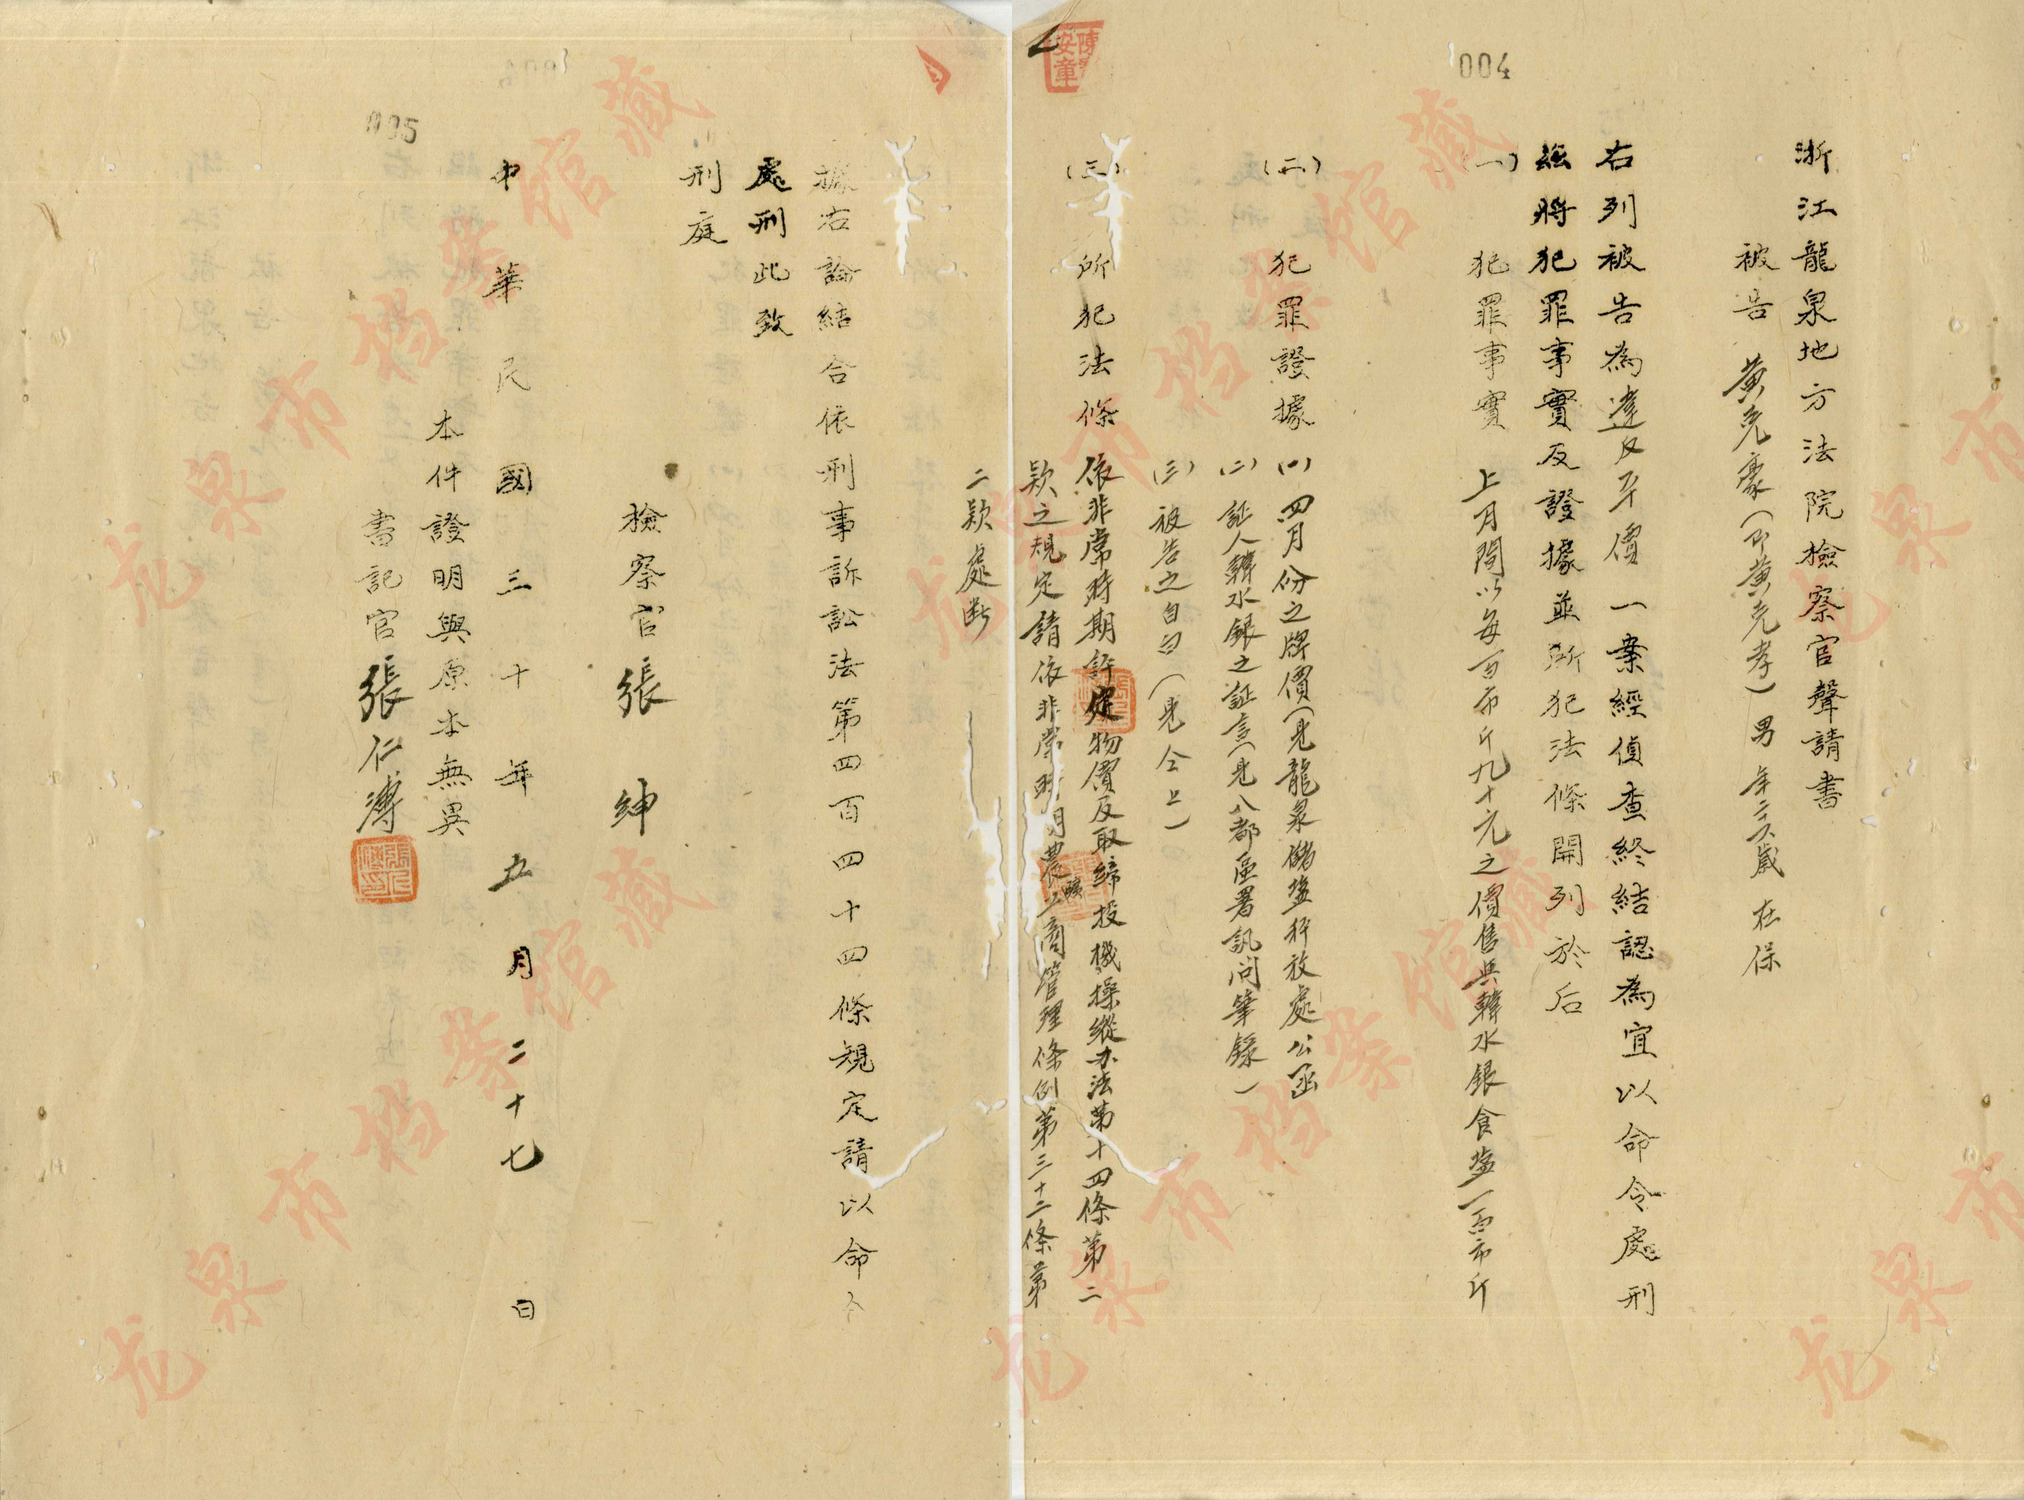 004
浙江龍泉地方法院檢察官聲請書
被告 黃克豪（即黃克孝）男 年二六歲 在保
右列被告為違反平價一案經偵查終結認為宜以命令處刑
茲將犯罪事實及證據並所犯法條開列於后
（一）犯罪事實 上月間以每百市斤九十元之價售與韓水銀食塩一百市斤
（二）犯罪證據 （一）四月份之牌價（見龍泉儲塩秤放處公函
（二）証人韓水銀之証言（見八都區署訊問筆錄）
（三）被告之自白（見仝上）
（三）所犯法條 依非常時期評定物價及取締投機操縱办法第十四條第二
款之規定請依非常時期農礦工商管理條例第三十二條第
二款處断
據右論結合依刑事訴訟法第四百四十四條規定請以命令
處刑此致
刑庭
檢察官 張紳
中華民國三十年五月二十七日
本件證明與原本無異
書記官 張仁溥
005
龙泉市档案馆藏